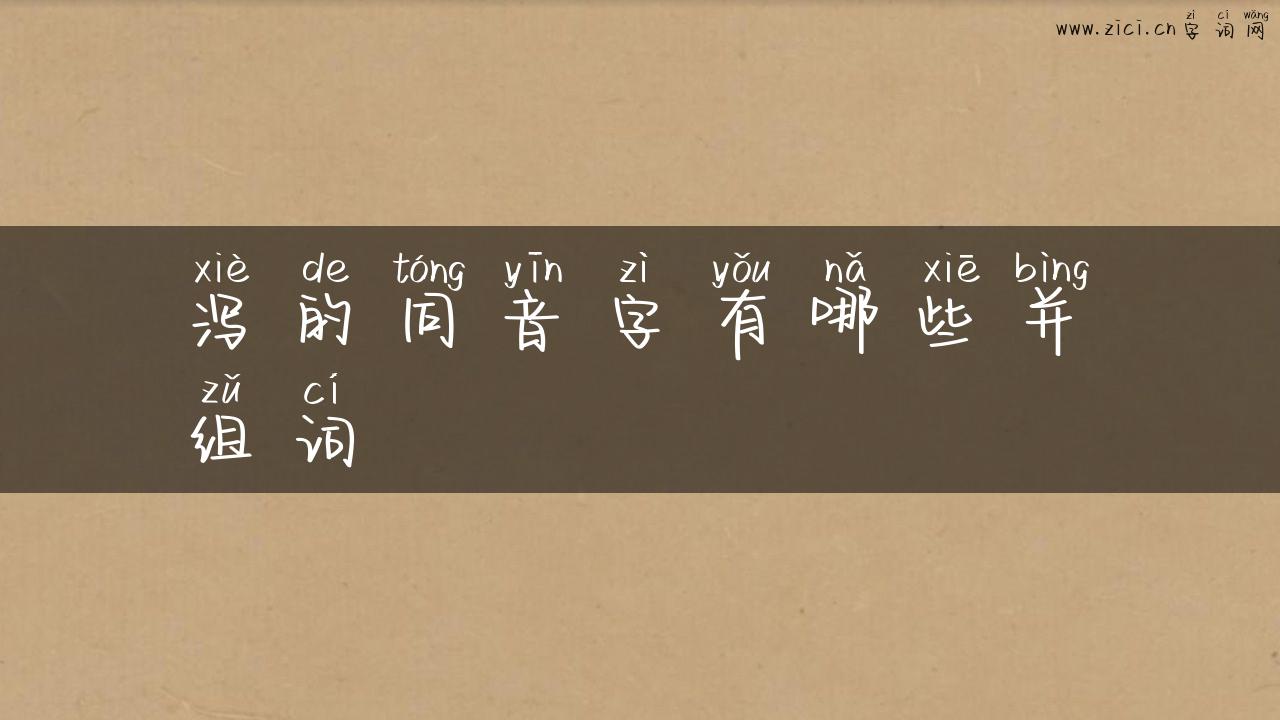 www.zici.cn 字词网
zì cí wǎng
xiè de tóng yīn zì yǒu nǎ xiē bìng
泻的同音字有哪些并
zǔ cí
组词